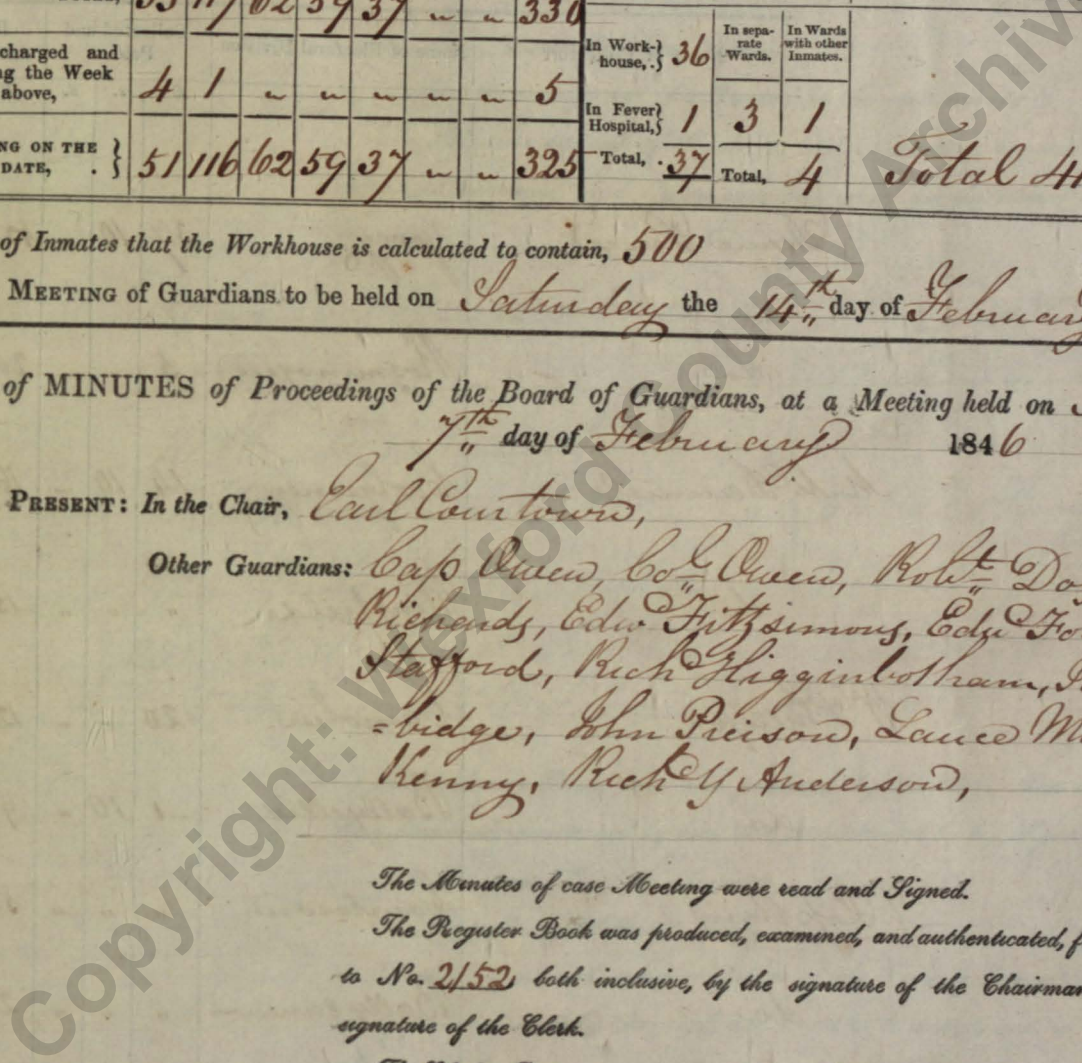 55 117 62 59 37 " " 330
charged and
ng the Week
above, 4 1 " " " " " 5
NG ON THE
DATE, . } 51 116 62 59 37 " " 325
In Work-
house, . } 36
In Fever
Hospital, } 1
Total, . 37
In sepa-
rate
Wards.
In Wards
with other
Inmates.
3 1
Total, 4
Total 41
of Inmates that the Workhouse is calculated to contain, 500
MEETING of Guardians to be held on Saturday the 14th day of February
of MINUTES of Proceedings of the Board of Guardians, at a Meeting held on
7th day of February 1846
PRESENT: In the Chair, Earl Courtown,
Other Guardians: Cap Owen, Col Owen, Robt Do
Richards, Edwd Fitzsimons, Edwd Fo
Stafford, Richd Higginbotham,
=bidge, John Pierson, Lance M
Kenny, Richd Y Anderson,
The Minutes of case Meeting were read and Signed.
The Register Book was produced, examined, and authenticated, f
to No. 2152, both inclusive, by the signature of the Chairman
signature of the Clerk.
Copyright: Wexford County Archive